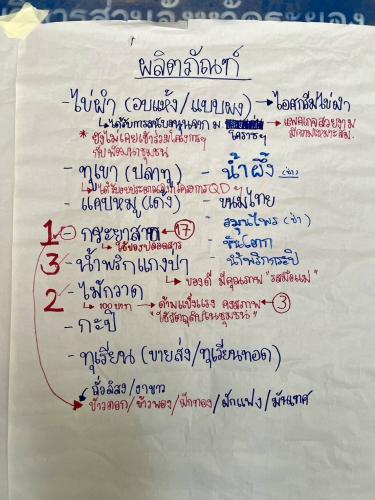 ผลิตภัณฑ์
- ไข่ผำ (อบแห้ง/แบบผง) → ไอศกรีมไข่ผำ
ได้รับการสนับสนุนจาก ม. โคราชฯ
แพคเกจสวยงาม
* ยังไม่เคยเข้าร่วมโครงการฯ
กับพัฒนาชุมชน
- ทูเขา (ปลาทู)
- น้ำผึ้ง
- แคปหมู (เด้ง)
- ขนมไทย
- สมุนไพร
1 - กระยาสารท 17
ใช้ของปลอดสาร
3 - น้ำพริกแกงป่า
- น้ำพริกกะปิ
ของดี มีคุณภาพ "รสมือแม่"
2 - ไม้กวาด
100 บาท → ด้ามแข็งแรง คงสภาพ 3
"ใช้วัตถุดิบในชุมชน"
- กะปิ
- ทุเรียน (ขายส่ง/ทุเรียนทอด)
ถั่วลิสง/งาขาว
ข้าวตอก/ข้าวพอง/ฟักทอง/ผักแฟง/มันเทศ